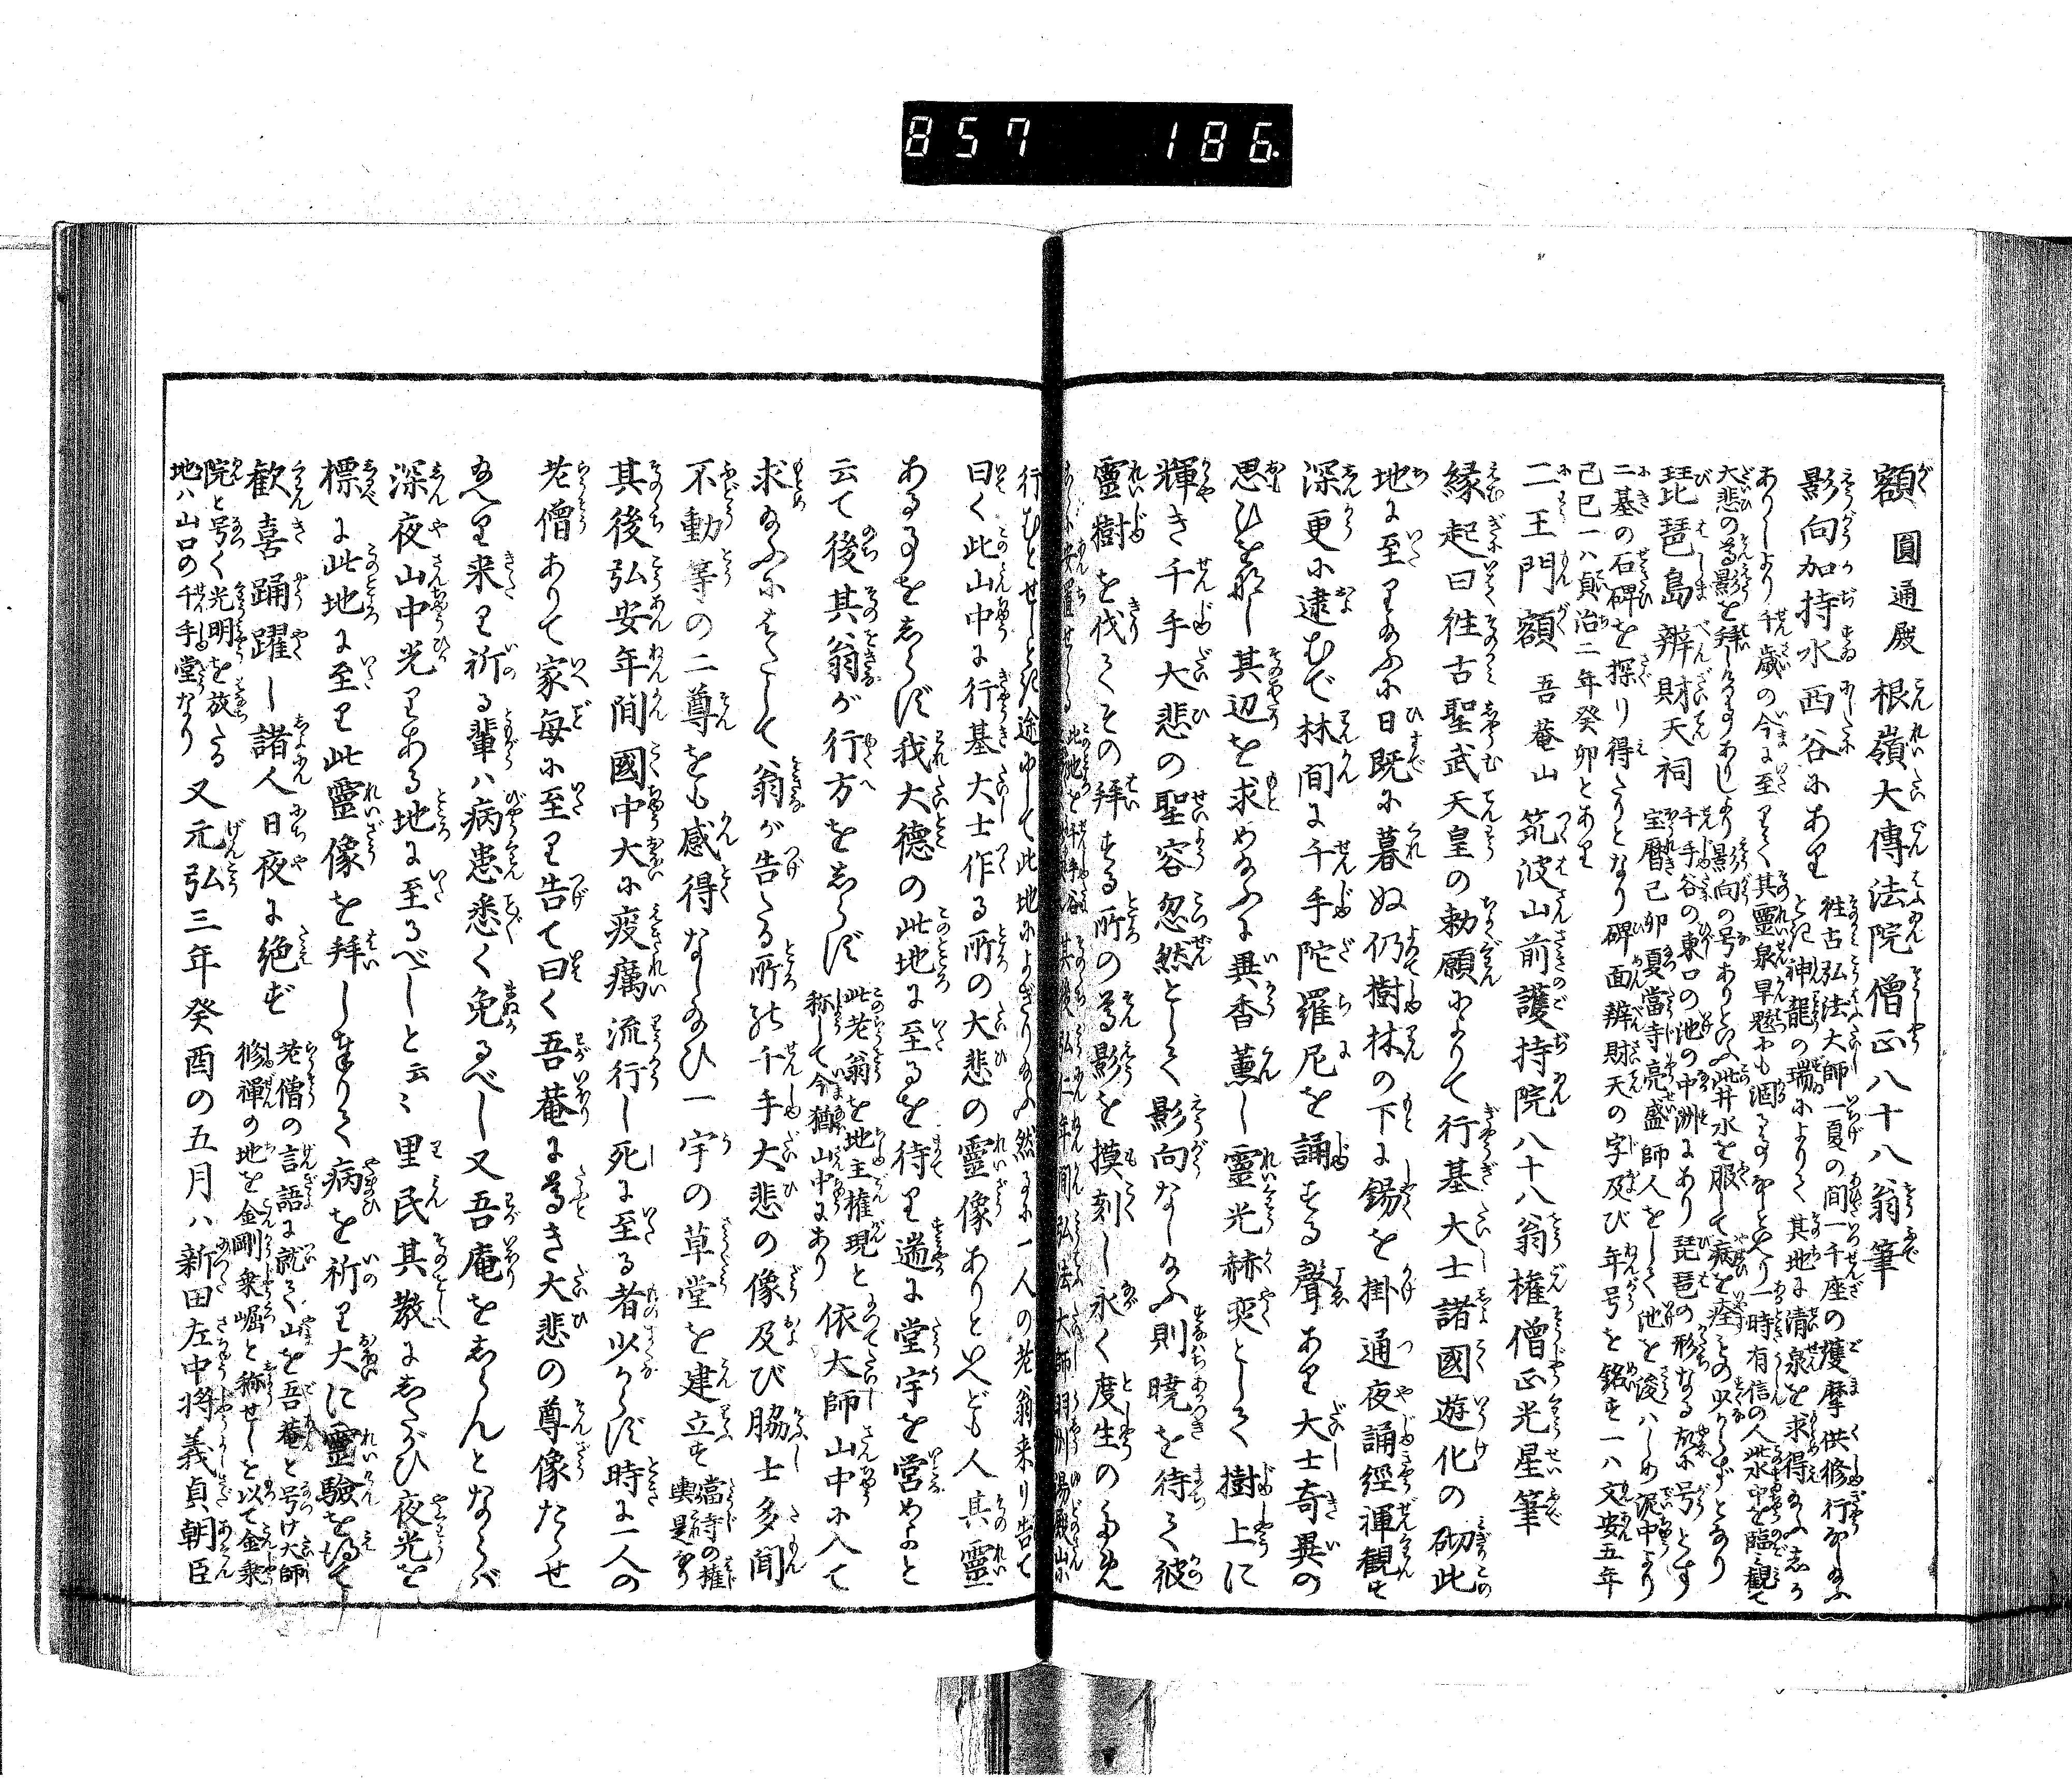 857 186.
額 圓通殿 根嶺大傳法院僧正八十八翁筆
影向加持水 西谷にあり
徃古弘法大師一夏の間一千座の護摩供修行なし給ふ
とき神龍の瑞によりて其地に清泉を求得給ふしか
ありしより千歳の今に至りて其靈泉旱懸にも涸るゝ事なしといへり一時有信の人此水中を臨み観て
大悲の尊影を拝し奉る事ありしより影向の号ありといふ此井水を服して病を痊ものすくなからずとなり
琵琶島辨財天祠
千手谷の東口の池の中洲にあり琵琶の形なる故に号とす
宝暦己卯夏當寺亮盛師人をして池を浚はしめ泥中より
二基の石碑を探り得たりとなり碑面辨財天の字及び年号を銘す一ハ文安五年
己巳一ハ貞治二年癸卯とあり
二王門額 吾菴山 筑波山前護持院八十八翁権僧正光星筆
縁起曰徃古聖武天皇の勅願によりて行基大士諸國遊化の砌此
地に至り給ふに日既に暮ぬ仍樹林の下に錫を掛通夜誦經禪観す
深更に逮むで林間に千手陀羅尼を誦する聲あり大士奇異の
思ひを那し其辺を求め給ふに異香薫し靈光赫奕として樹上に
輝き千手大悲の聖容忽然として影向なし給ふ則暁を待て彼
靈樹を伐てその拝する所の尊影を摸刻し永く度生のため
此地を千手谷 其後弘仁年間弘法大師羽州湯殿山に
行むとせしとき途中して此地によぎり給ふ然るに一人の老翁来り告て
曰く此山中に行基大士作る所の大悲の靈像ありといへども人其靈
ある事をしらず我大徳の此地に至るを待り速に堂宇を営めよと
云て後其翁が行方をしらず
此老翁を地主権現と
称して今猶山中にあり
依大師山中に入て
求給ふにはたして翁が告たる所能千手大悲の像及び脇士多聞
不動等の二尊をも感得なし給ひ一宇の草堂を建立す
當寺の権
輿是なり
其後弘安年間國中大に疫癘流行し死に至る者少からず時に一人の
老僧ありて家毎に至り告て曰く吾菴に尊き大悲の尊像たゝせ
給へり来り祈る輩ハ病患悉く免るべし又吾庵をしらんとならバ
深夜山中光りある地に至るべしと云々里民其教にしたがひ夜光を
標に此地に至り此靈像を拝し奉りて病を祈り大に靈驗を得て
歓喜踊躍し諸人日夜に絶ず
老僧の言語に就て山を吾菴と号け大師
修禪の地を金剛乗崛と称せしを以て金乗
院と号く光明を放たる
地ハ山口の千手堂なり
又元弘三年癸酉の五月ハ新田左中将義貞朝臣